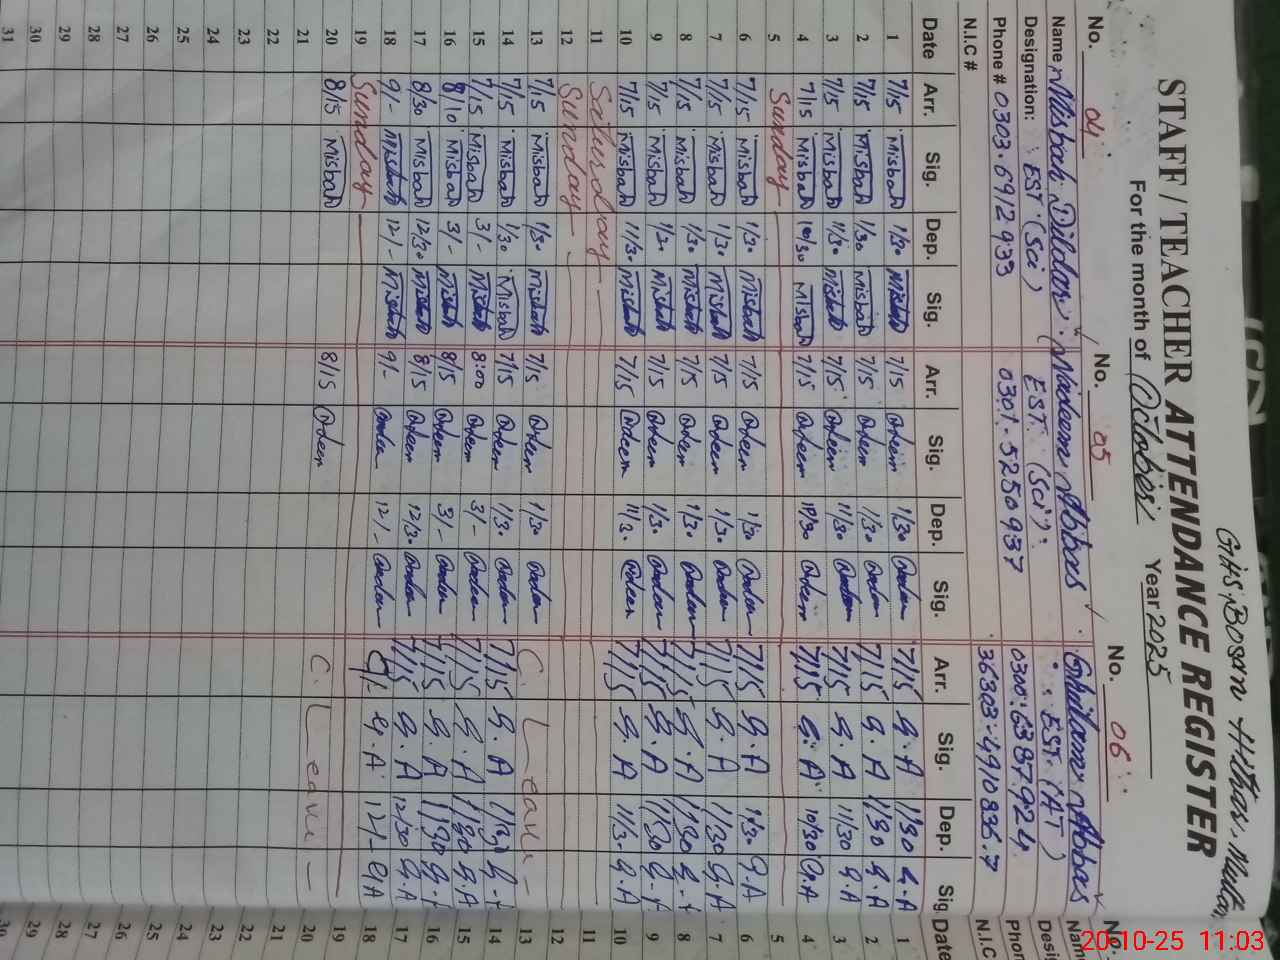 GHS, Bosan
STAFF / TEACHER ATTENDANCE REGISTER
For the month of October Year 2025
No. 04 No. 05 No. 06 No.
Name Misbah Dildar Nadeem Abbas Ghulam Abbas Name
Designation: EST (Sci) EST (Sci) EST (AT)
Phone # 0303.6912933 0301.5250937 0300.6387924
N.I.C # 36303-4910835.7 N.I.C
Date Arr. Sig. Dep. Sig. Arr. Sig. Dep. Sig. Arr. Sig. Dep. Sig Date
1 7/15 Misbah 1/30 Misbah 7/15 1/30 7/15 G.A 1/30 G.A 1
2 7/15 Misbah 1/30 Misbah 7/15 1/30 7/15 G.A 1/30 G.A 2
3 7/15 Misbah 11/30 Misbah 7/15 11/30 7/15 G.A 11/30 G.A 3
4 7/15 Misbah 10/30 Misbah 7/15 10/30 7/15 G.A 10/30 G.A 4
5 Sunday 5
6 7/15 Misbah 1/30 Misbah 7/15 1/30 7/15 G.A 1/30 G.A 6
7 7/15 Misbah 1/30 Misbah 7/15 1/30 7/15 G.A 1/30 G.A 7
8 7/15 Misbah 1/30 Misbah 7/15 1/30 7/15 G.A 1/30 8
9 7/15 Misbah 1/30 Misbah 7/15 1/30 7/15 G.A 1/30 9
10 7/15 Misbah 11/30 Misbah 7/15 11/30 7/15 G.A 11/30 G.A 10
11 Saturday 11
12 Sunday 12
13 7/15 Misbah 1/30 Misbah 7/15 1/30 C. Leave 13
14 7/15 Misbah 1/30 Misbah 7/15 1/30 7/15 G.A 1/30 14
15 7/15 Misbah 3/- Misbah 8:00 3/- 7/15 G.A 1/30 G.A 15
16 8/10 Misbah 3/- Misbah 8/15 3/- 7/15 G.A 1/30 16
17 8/30 Misbah 12/30 Misbah 8/15 12/30 7/15 G.A 12/30 G.A 17
18 9/- Misbah 12/- Misbah 9/- 12/- 9/- G.A 12/- G.A 18
19 Sunday 19
20 8/15 Misbah 8/15 C. Leave 20
21
22
23
24
25
26
27
28
29
30
31
20-10-25 11:03